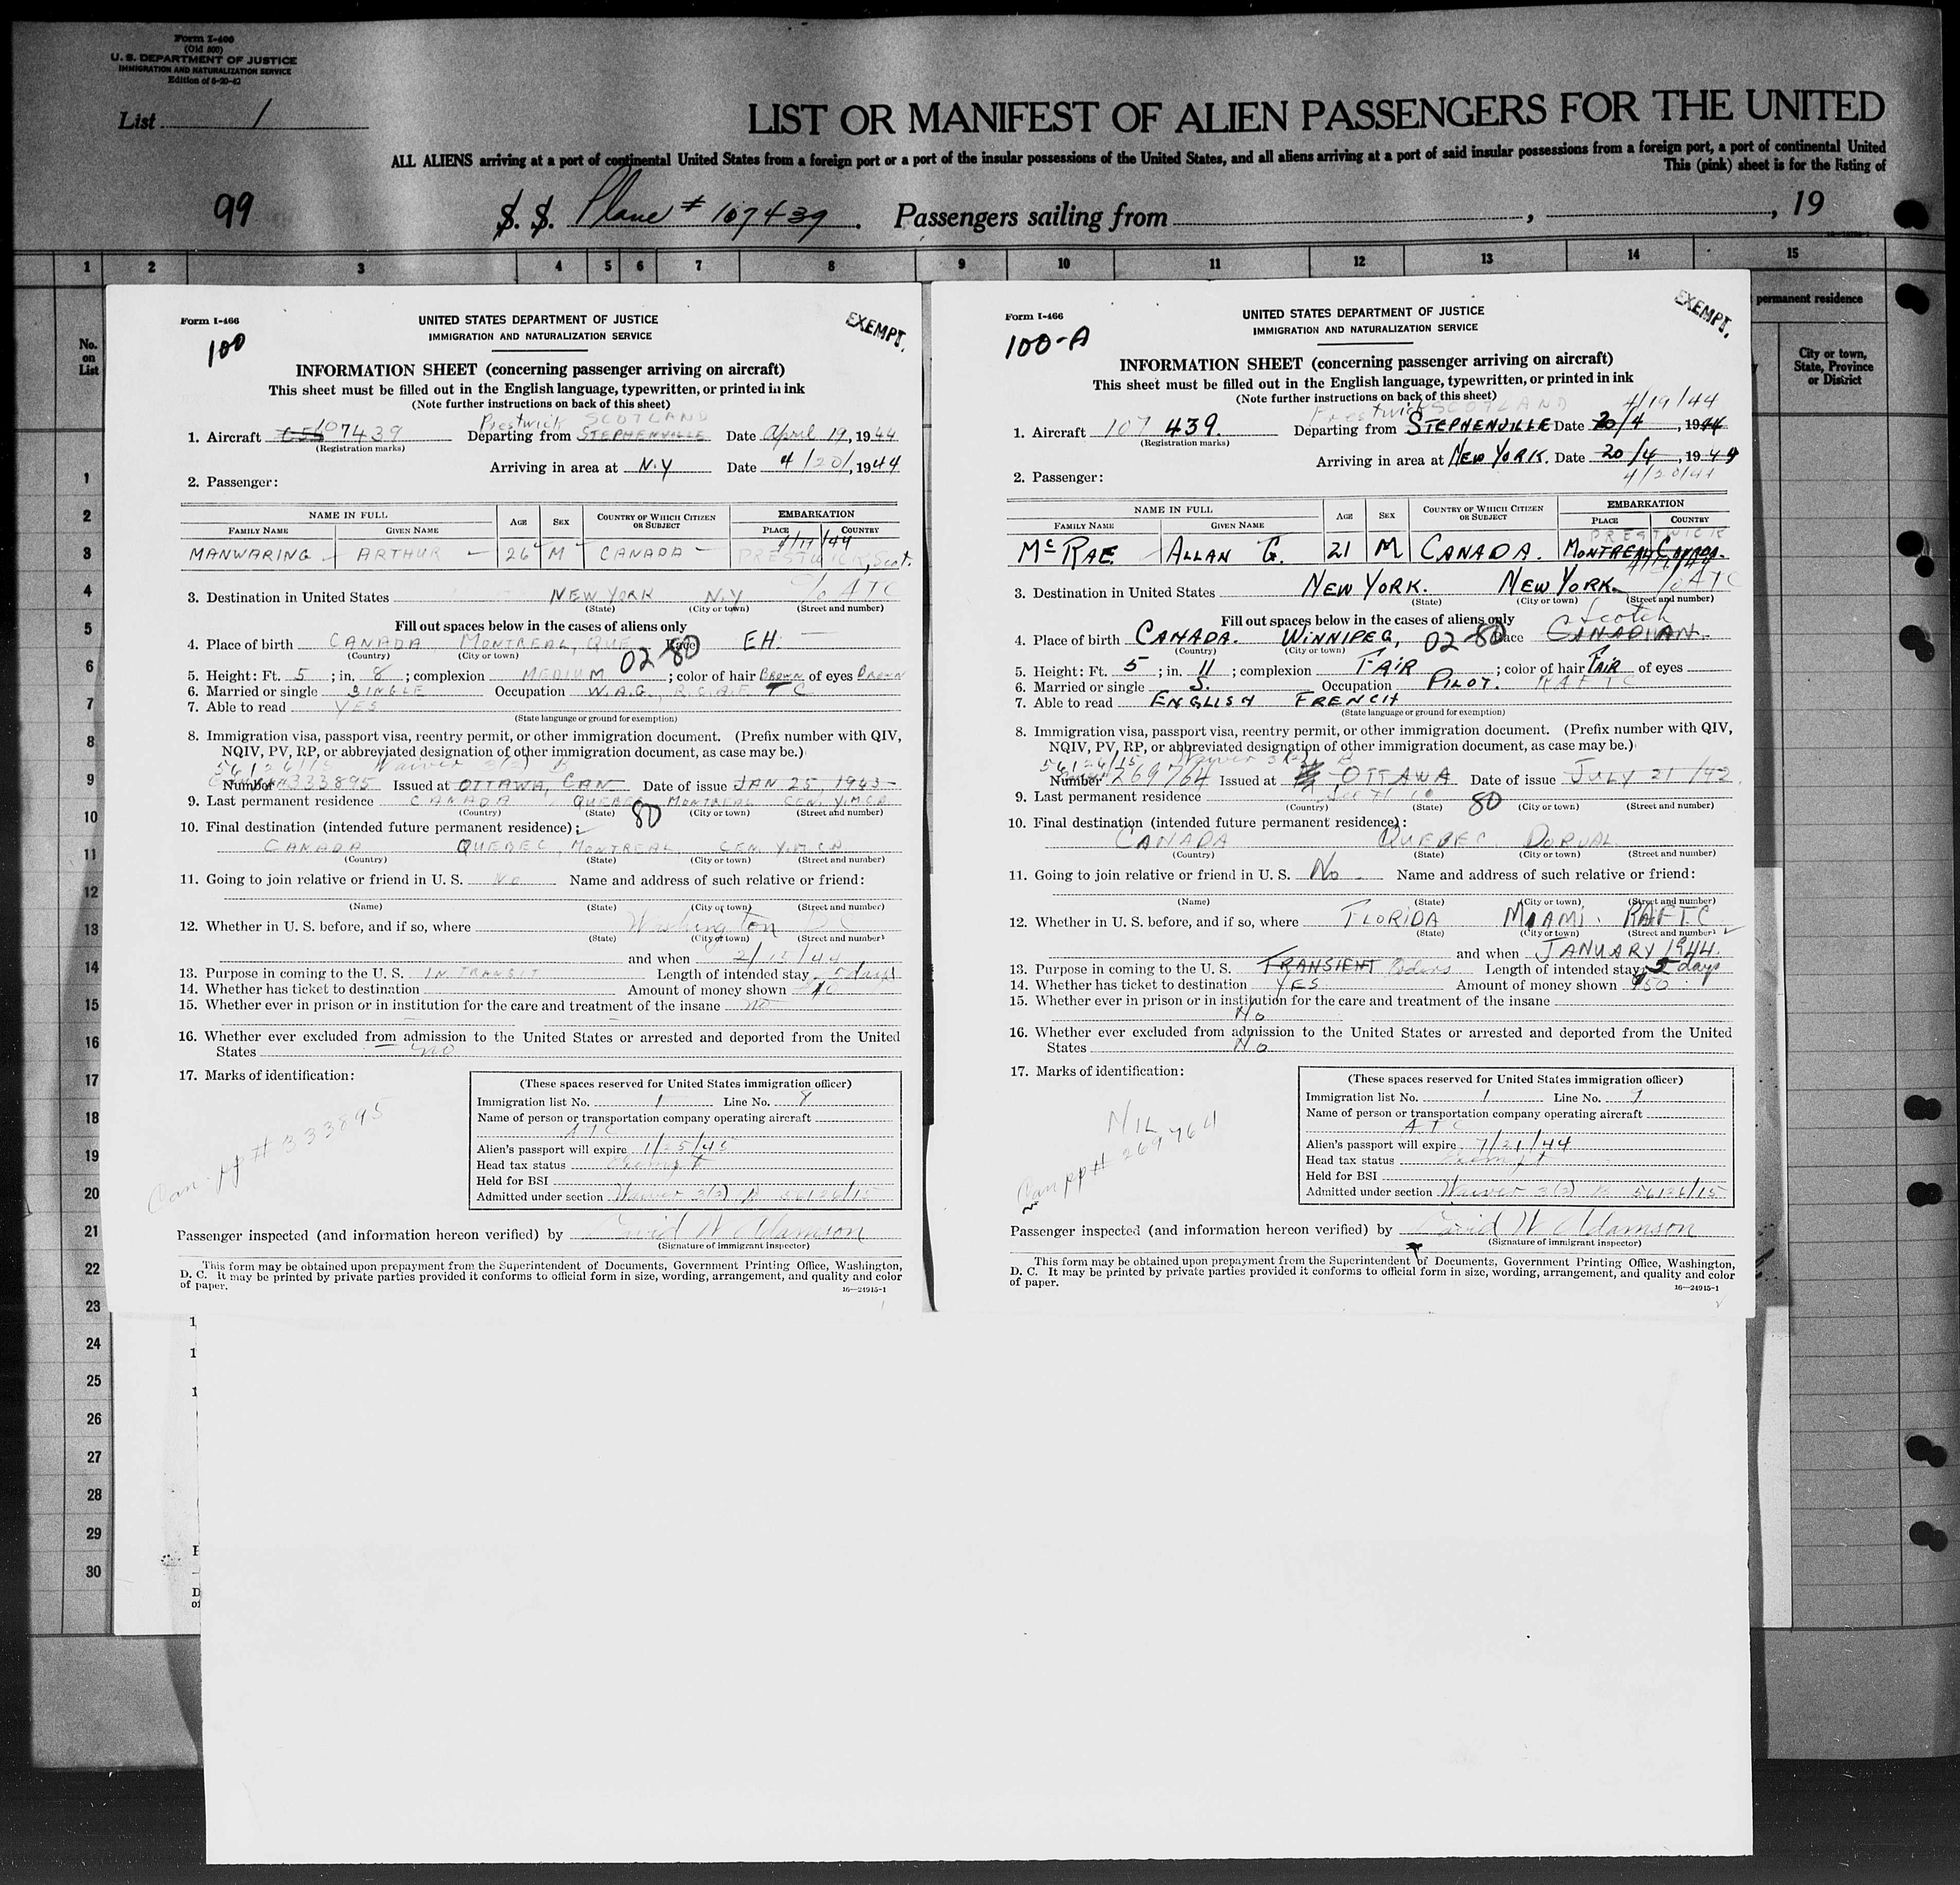 Form I-466
(Old 500)
U. S. DEPARTMENT OF JUSTICE
IMMIGRATION AND NATURALIZATION SERVICE
Edition of 5-20-42
List 1
LIST OR MANIFEST OF ALIEN PASSENGERS FOR THE UNITED
ALL ALIENS arriving at a port of continental United States from a foreign port or a port of the insular possessions of the United States, and all aliens arriving at a port of said insular possessions from a foreign port, a port of continental United
This (pink) sheet is for the listing of
99
S. S. Plane # 107439. Passengers sailing from , , 19
1 2 3 4 5 6 7 8 9 10 11 12 13 14 15
No. on List
permanent residence
City or town, State, Province or District
1
2
3
4
5
6
7
8
9
10
11
12
13
14
15
16
17
18
19
20
21
22
23
24
25
26
27
28
29
30
Form I-466
100
UNITED STATES DEPARTMENT OF JUSTICE
IMMIGRATION AND NATURALIZATION SERVICE
EXEMPT.
INFORMATION SHEET (concerning passenger arriving on aircraft)
This sheet must be filled out in the English language, typewritten, or printed in ink
(Note further instructions on back of this sheet)
Prestwick SCOTLAND
1. Aircraft 107439 Departing from STEPHENVILLE Date April 19, 1944
(Registration marks)
Arriving in area at N.Y Date 4/20/, 1944
2. Passenger:
NAME IN FULL AGE SEX COUNTRY OF WHICH CITIZEN OR SUBJECT EMBARKATION
FAMILY NAME GIVEN NAME PLACE COUNTRY
4/17/44
MANWARING ARTHUR 26 M CANADA PRESTWICK, Scot.
3. Destination in United States NEW YORK N.Y c/o ATC
(State) (City or town) (Street and number)
Fill out spaces below in the cases of aliens only
4. Place of birth CANADA MONTREAL, QUE Race EH.
(Country) (City or town)
02-80
5. Height: Ft. 5; in. 8; complexion MEDIUM; color of hair BROWN of eyes BROWN
6. Married or single SINGLE Occupation W.A.G., R.C.A.F. T C
7. Able to read YES
(State language or ground for exemption)
8. Immigration visa, passport visa, reentry permit, or other immigration document. (Prefix number with QIV,
NQIV, PV, RP, or abbreviated designation of other immigration document, as case may be.)
56126/15 Waiver 3(2) B
Number 333895 Issued at OTTAWA, CAN Date of issue JAN 25, 1943
9. Last permanent residence CANADA QUEBEC MONTREAL CEN. Y.M.C.A
(Country) (State) (City or town) (Street and number)
80
10. Final destination (intended future permanent residence):
CANADA QUEBEC, MONTREAL CEN. Y.M.C.A
(Country) (State) (City or town) (Street and number)
11. Going to join relative or friend in U. S. No Name and address of such relative or friend:
(Name) (State) (City or town) (Street and number)
12. Whether in U. S. before, and if so, where Washington DC
(State) (City or town) (Street and number)
and when 2/15/44
13. Purpose in coming to the U. S. IN TRANSIT Length of intended stay 5 days
14. Whether has ticket to destination Amount of money shown $10
15. Whether ever in prison or in institution for the care and treatment of the insane no
16. Whether ever excluded from admission to the United States or arrested and deported from the United
States no
17. Marks of identification:
Can. pp # 333895
(These spaces reserved for United States immigration officer)
Immigration list No. 1 Line No. 8
Name of person or transportation company operating aircraft
ATC
Alien's passport will expire 1/25/45
Head tax status Exempt
Held for BSI
Admitted under section Waiver 3(2) B 56126/15
Passenger inspected (and information hereon verified) by David W Adamson
(Signature of immigrant inspector)
This form may be obtained upon prepayment from the Superintendent of Documents, Government Printing Office, Washington,
D. C. It may be printed by private parties provided it conforms to official form in size, wording, arrangement, and quality and color
of paper.
16—24915-1
Form I-466
100-A
UNITED STATES DEPARTMENT OF JUSTICE
IMMIGRATION AND NATURALIZATION SERVICE
EXEMPT.
INFORMATION SHEET (concerning passenger arriving on aircraft)
This sheet must be filled out in the English language, typewritten, or printed in ink
(Note further instructions on back of this sheet)
Prestwick SCOTLAND 4/19/44
1. Aircraft 107 439. Departing from STEPHENVILLE Date 20/4, 1944
(Registration marks)
Arriving in area at NEW YORK. Date 20/4, 1944
4/20/44
2. Passenger:
NAME IN FULL AGE SEX COUNTRY OF WHICH CITIZEN OR SUBJECT EMBARKATION
FAMILY NAME GIVEN NAME PLACE COUNTRY
PRESTWICK
McRAE. ALLAN G. 21 M CANADA. MONTREAL CANADA.
4/17/44
3. Destination in United States NEW YORK. NEW YORK. c/o ATC
(State) (City or town) (Street and number)
Fill out spaces below in the cases of aliens only
Scotch
4. Place of birth CANADA. WINNIPEG, 02-80 Race CANADIAN.
(Country) (City or town)
5. Height: Ft. 5; in. 11; complexion FAIR; color of hair FAIR of eyes
6. Married or single S. Occupation PILOT. RAFTC
7. Able to read ENGLISH FRENCH
(State language or ground for exemption)
8. Immigration visa, passport visa, reentry permit, or other immigration document. (Prefix number with QIV,
NQIV, PV, RP, or abbreviated designation of other immigration document, as case may be.)
56126/15 Waiver 3(2) B
Number 269764 Issued at OTTAWA Date of issue JULY 21/42.
9. Last permanent residence See # 10
(Country) (State) 80 (City or town) (Street and number)
10. Final destination (intended future permanent residence):
CANADA QUEBEC. DORVAL.
(Country) (State) (City or town) (Street and number)
11. Going to join relative or friend in U. S. No Name and address of such relative or friend:
(Name) (State) (City or town) (Street and number)
12. Whether in U. S. before, and if so, where FLORIDA MIAMI. RAFTC
(State) (City or town) (Street and number)
and when JANUARY 1944.
13. Purpose in coming to the U. S. TRANSIENT Orders Length of intended stay 5 days
14. Whether has ticket to destination YES Amount of money shown $50
15. Whether ever in prison or in institution for the care and treatment of the insane
No
16. Whether ever excluded from admission to the United States or arrested and deported from the United
States No
17. Marks of identification:
NIL
Can pp# 269764
(These spaces reserved for United States immigration officer)
Immigration list No. 1 Line No. 7
Name of person or transportation company operating aircraft
ATC
Alien's passport will expire 7/21/44
Head tax status Exempt
Held for BSI
Admitted under section Waiver 3(2) B 56126/15
Passenger inspected (and information hereon verified) by David W Adamson
(Signature of immigrant inspector)
This form may be obtained upon prepayment from the Superintendent of Documents, Government Printing Office, Washington,
D. C. It may be printed by private parties provided it conforms to official form in size, wording, arrangement, and quality and color
of paper.
16—24915-1